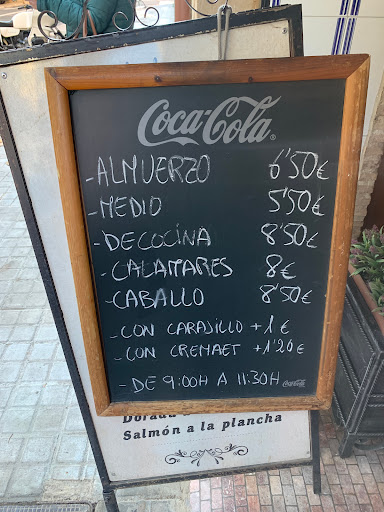 Coca-Cola
-ALMUERZO 6'50€
-MEDIO 5'50€
-DE COCINA 8'50€
-CALAMARES 8€
-CABALLO 8'50€
-CON CARAJILLO +1€
-CON CREMAET +1'20€
-DE 9:00H A 11:30H
Coca-Cola
Dorada
Salmón a la plancha